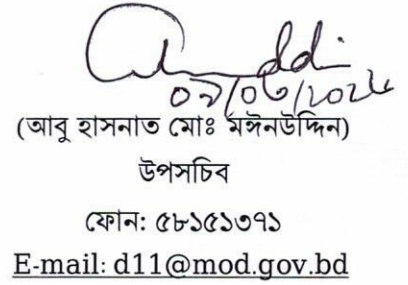 (আবু হাসনাত মোঃ মঈনউদ্দিন)
উপসচিব
ফোন: ৫৮১৫১৩৭১
E-mail: d11@mod.gov.bd